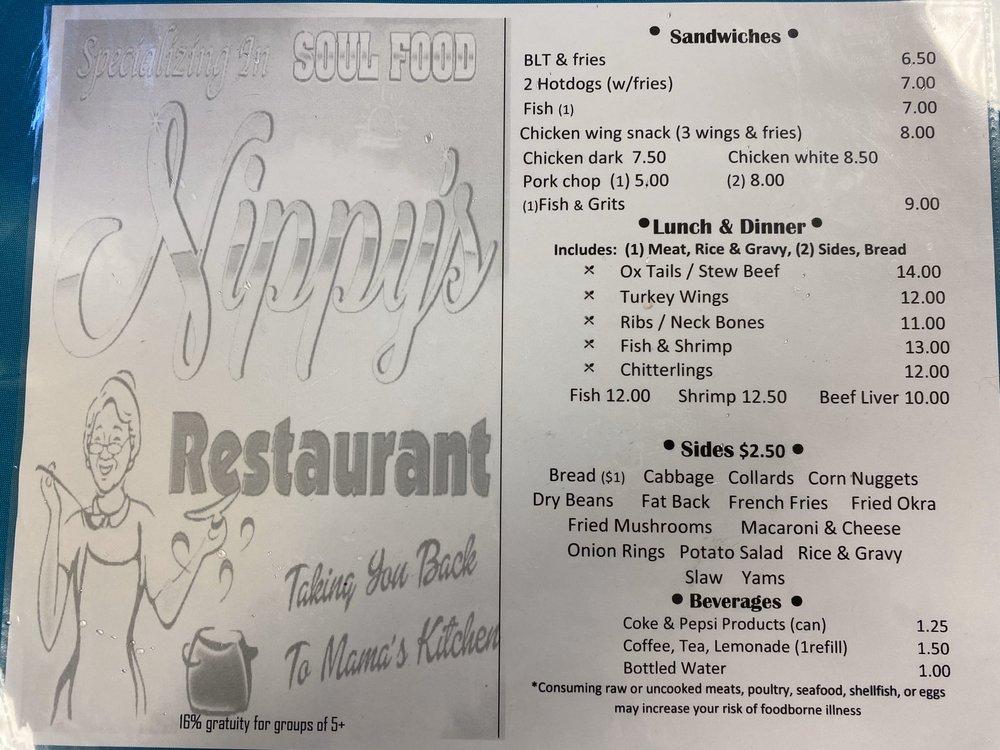 Specializing In SOUL FOOD
Nippy's
Restaurant
Taking You Back
To Mama's Kitchen
16% gratuity for groups of 5+
• Sandwiches •
BLT & fries 6.50
2 Hotdogs (w/fries) 7.00
Fish (1) 7.00
Chicken wing snack (3 wings & fries) 8.00
Chicken dark 7.50 Chicken white 8.50
Pork chop (1) 5.00 (2) 8.00
(1)Fish & Grits 9.00
• Lunch & Dinner •
Includes: (1) Meat, Rice & Gravy, (2) Sides, Bread
Ox Tails / Stew Beef 14.00
Turkey Wings 12.00
Ribs / Neck Bones 11.00
Fish & Shrimp 13.00
Chitterlings 12.00
Fish 12.00 Shrimp 12.50 Beef Liver 10.00
• Sides $2.50 •
Bread ($1) Cabbage Collards Corn Nuggets
Dry Beans Fat Back French Fries Fried Okra
Fried Mushrooms Macaroni & Cheese
Onion Rings Potato Salad Rice & Gravy
Slaw Yams
• Beverages •
Coke & Pepsi Products (can) 1.25
Coffee, Tea, Lemonade (1refill) 1.50
Bottled Water 1.00
*Consuming raw or uncooked meats, poultry, seafood, shellfish, or eggs
may increase your risk of foodborne illness